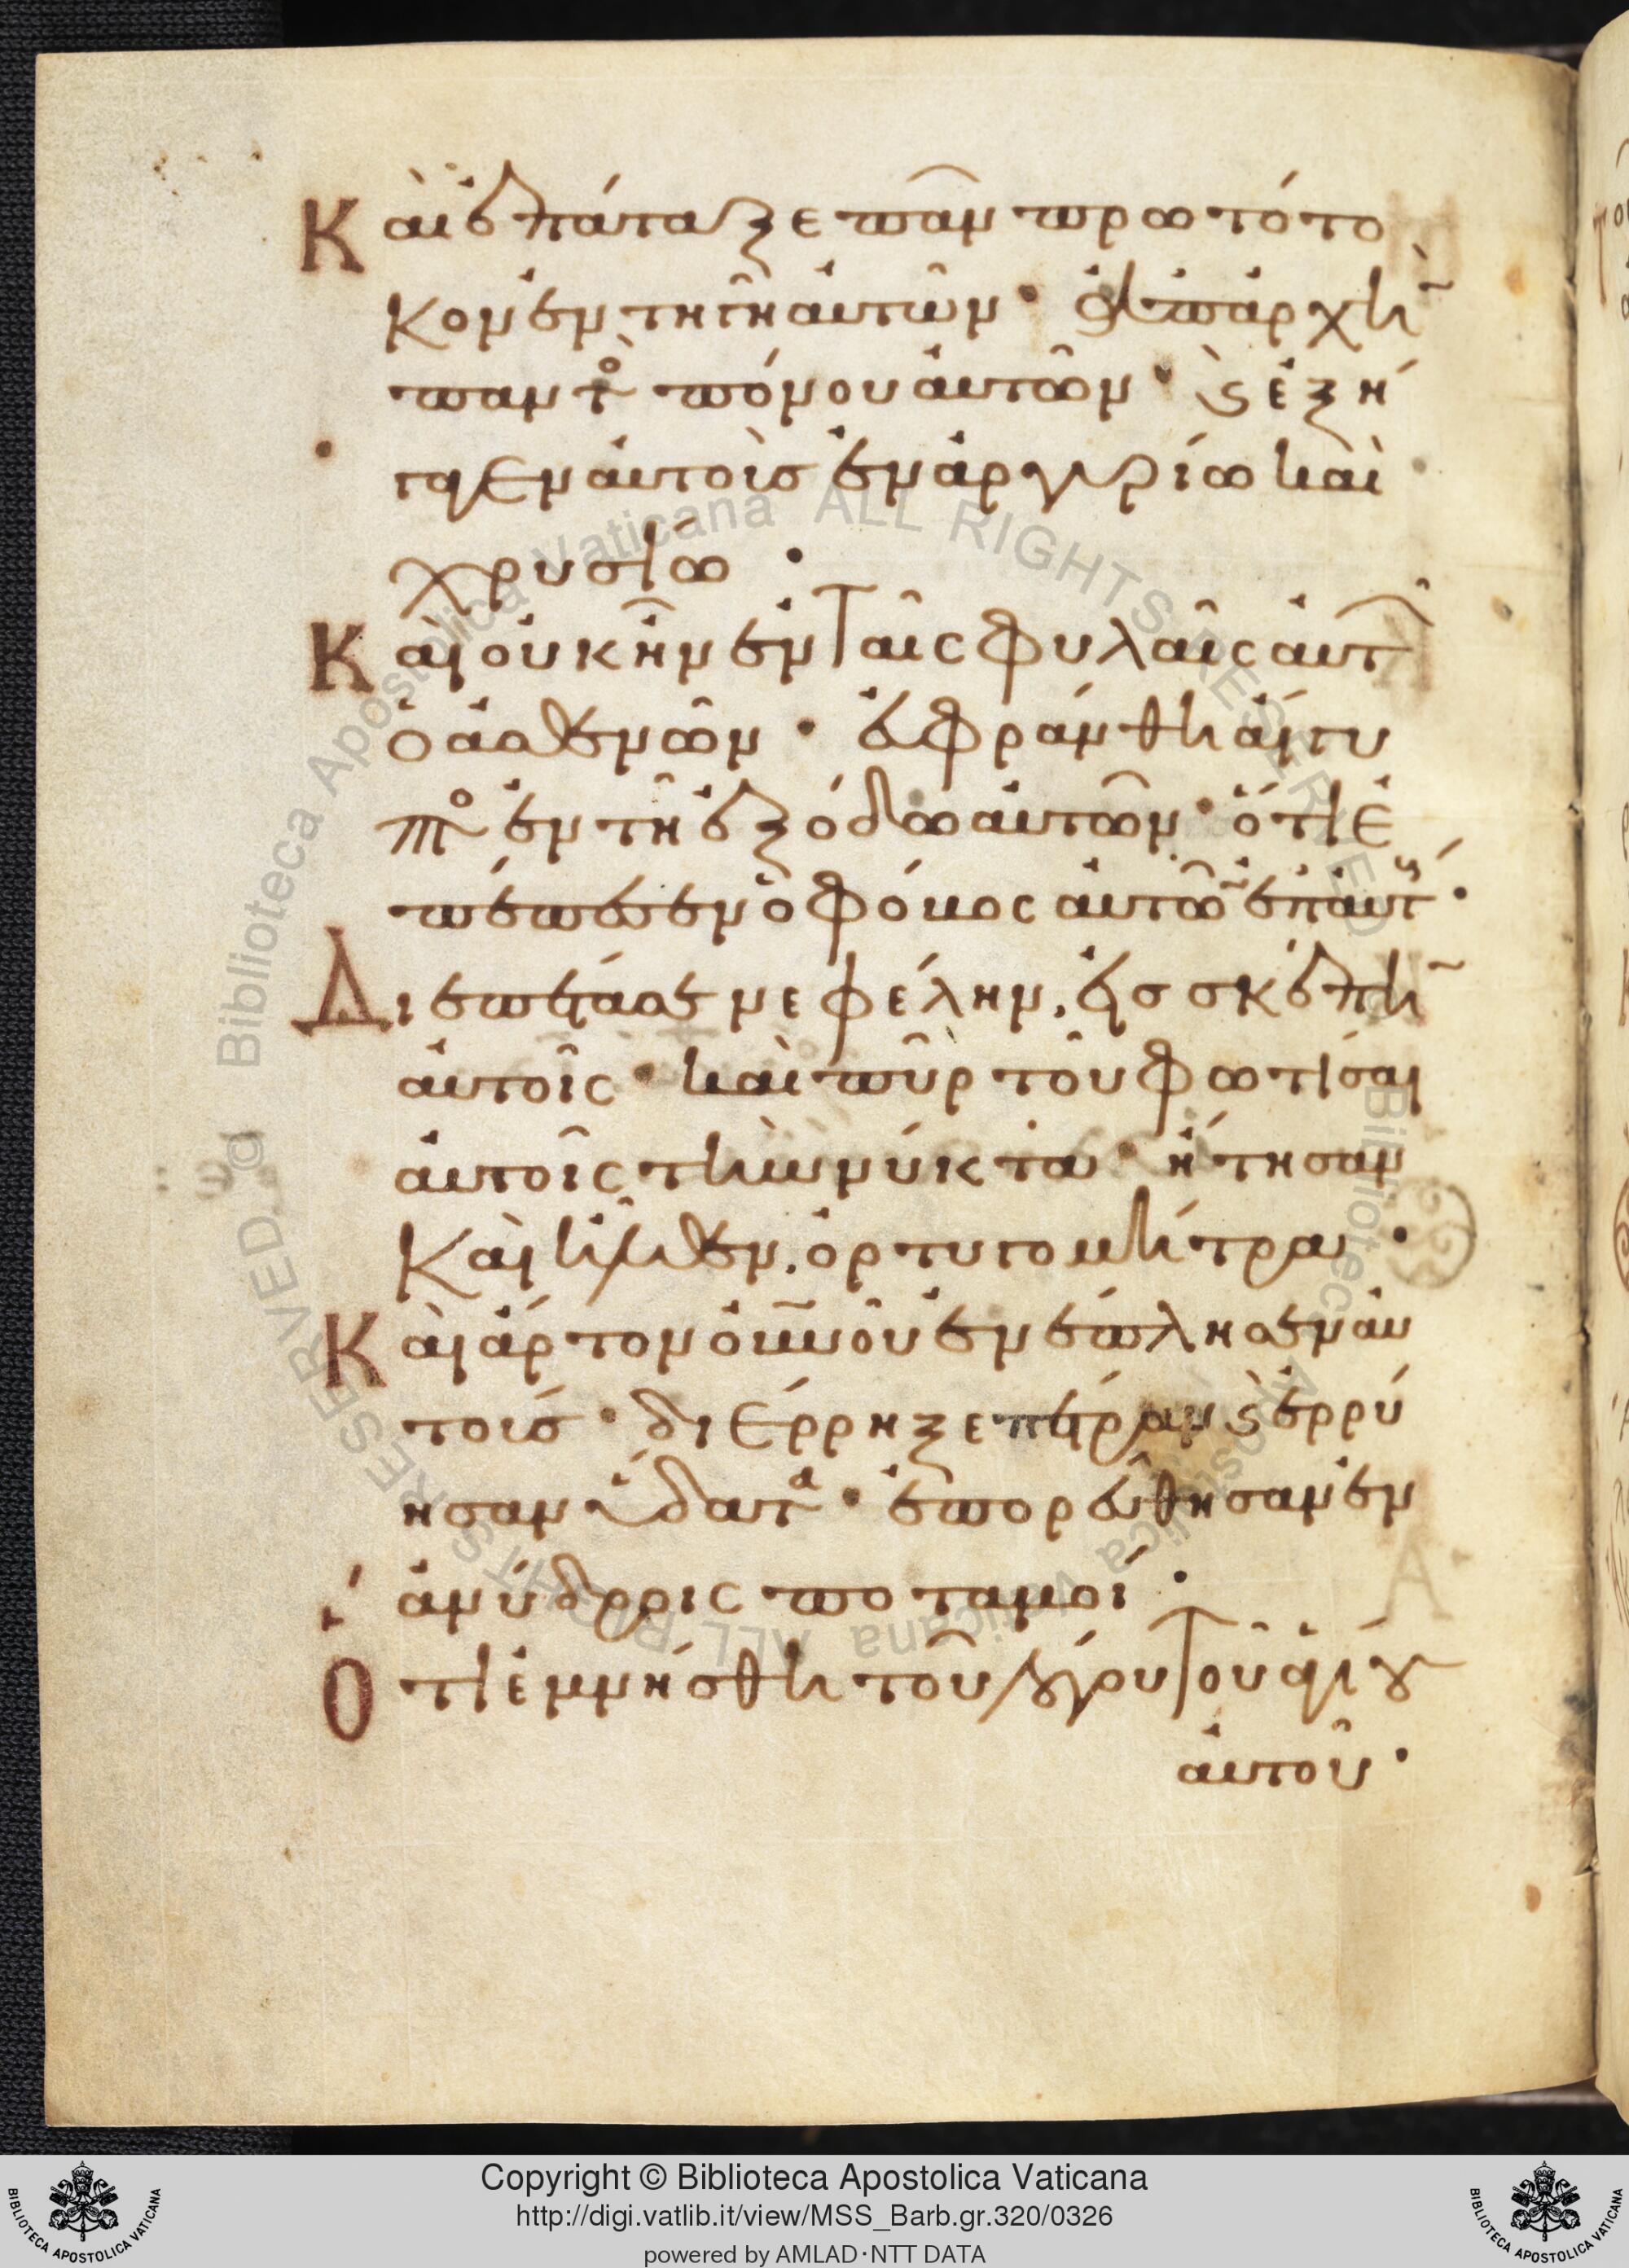 Καὶ ἐπάταξε πᾶν πρωτότο
κον ἐν τῇ γῇ αὐτῶν· ἀπαρχὴν
παντὸς πόνου αὐτῶν· καὶ ἐξή
γαγεν αὐτοὺς ἐν ἀργυρίω καὶ
χρυσίω·
Καὶ οὐκ ἦν ἐν ταῖς φυλαῖς αὐτῶν
ὁ ἀσθενῶν· εὐφράνθη αἴγυ
πτος ἐν τῇ ἐξόδω αὐτῶν· ὅτι ἐ
πέπεσεν ὁ φόβος αὐτῶν ἐπ αὐτούς·
Διεπέτασε νεφέλην, εἰς σκέπην
αὐτοῖς· καὶ πῦρ τοῦ φωτίσαι
αὐτοῖς τὴν νύκτα· ἤτησαν
Καὶ ἦλθεν, ὀρτυγομήτρα·
Καὶ ἄρτον οὐνοῦ ἐνέπλησεν αὐ
τούς· διέρρηξε πέτραν καὶ ἐρρύ
ησαν ὕδατα· ἐπορεύθησαν ἐν
ἀνύδροις ποταμοί·
Ὅτι ἐμνήσθη τοῦ λόγου τοῦ ἁγίου
αὐτοῦ·
Biblioteca Apostolica Vaticana ALL RIGHTS RESERVED
Biblioteca Apostolica Vaticana ALL RIGHTS RESERVED ©
Copyright © Biblioteca Apostolica Vaticana
http://digi.vatlib.it/view/MSS_Barb.gr.320/0326
powered by AMLAD·NTT DATA
BIBLIOTECA APOSTOLICA VATICANA
BIBLIOTECA APOSTOLICA VATICANA